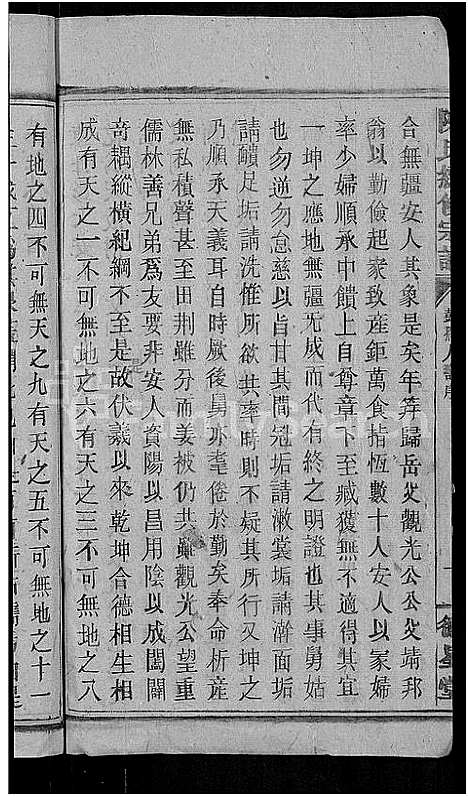 合無疆安人其象是矣年笄歸岳父觀光公公父靖邦
翁以勤儉起家致産鉅萬食指恆數十人安人以冢婦
率少婦順承中饋上自尊章下至臧獲無不禱得其宜
一坤之應地無疆无成而代有終之明證也其事舅姑
也勿逆勿怠慈以旨甘其間冠垢請漱裳垢請澣面垢
請靧足垢請洗惟所欲共率時則不疑其所行又坤之
乃順承天義也自時厥後舅亦耄倦於勤矣奉命析産
無私積聲甚至田荆雖分而姜被仍共與觀光公望重
儒林善兄弟爲友要非安人資陽以昌用陰以成闔闢
奇耦縱橫紀綱不至是故伏羲以來乾坤合德相生相
成有天之一不可無地之六有天之三不可無地之八
有地之四不可無天之九有天之五不可無地之十一